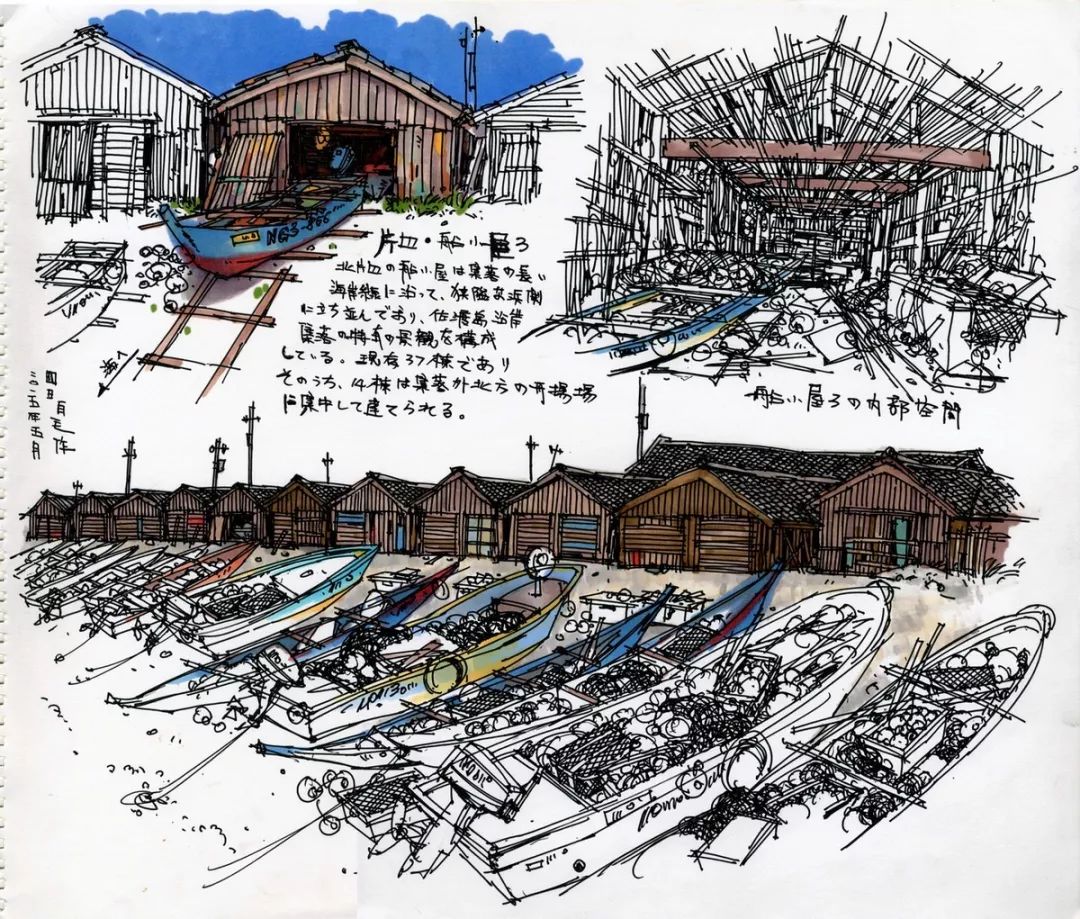 NG3-866
片辺・船小屋3
北片辺の船小屋は集落の長い
海岸線に沿って、狭隘な浜側
に立ち並んであり、佐渡島沿岸
集落の特有の景観を構成
している。現存37棟であり
そのうち、14棟は集落外北方の干場場
に集中して建てられる。
海へ
二〇二五年五月
船小屋3の内部空間